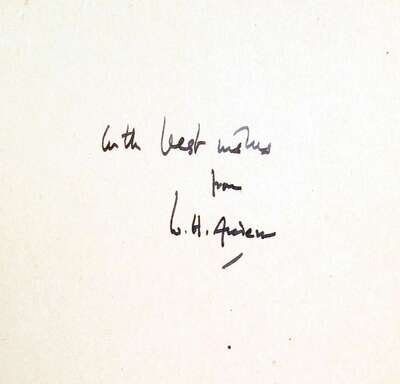 With best wishes
from
W. H. Auden